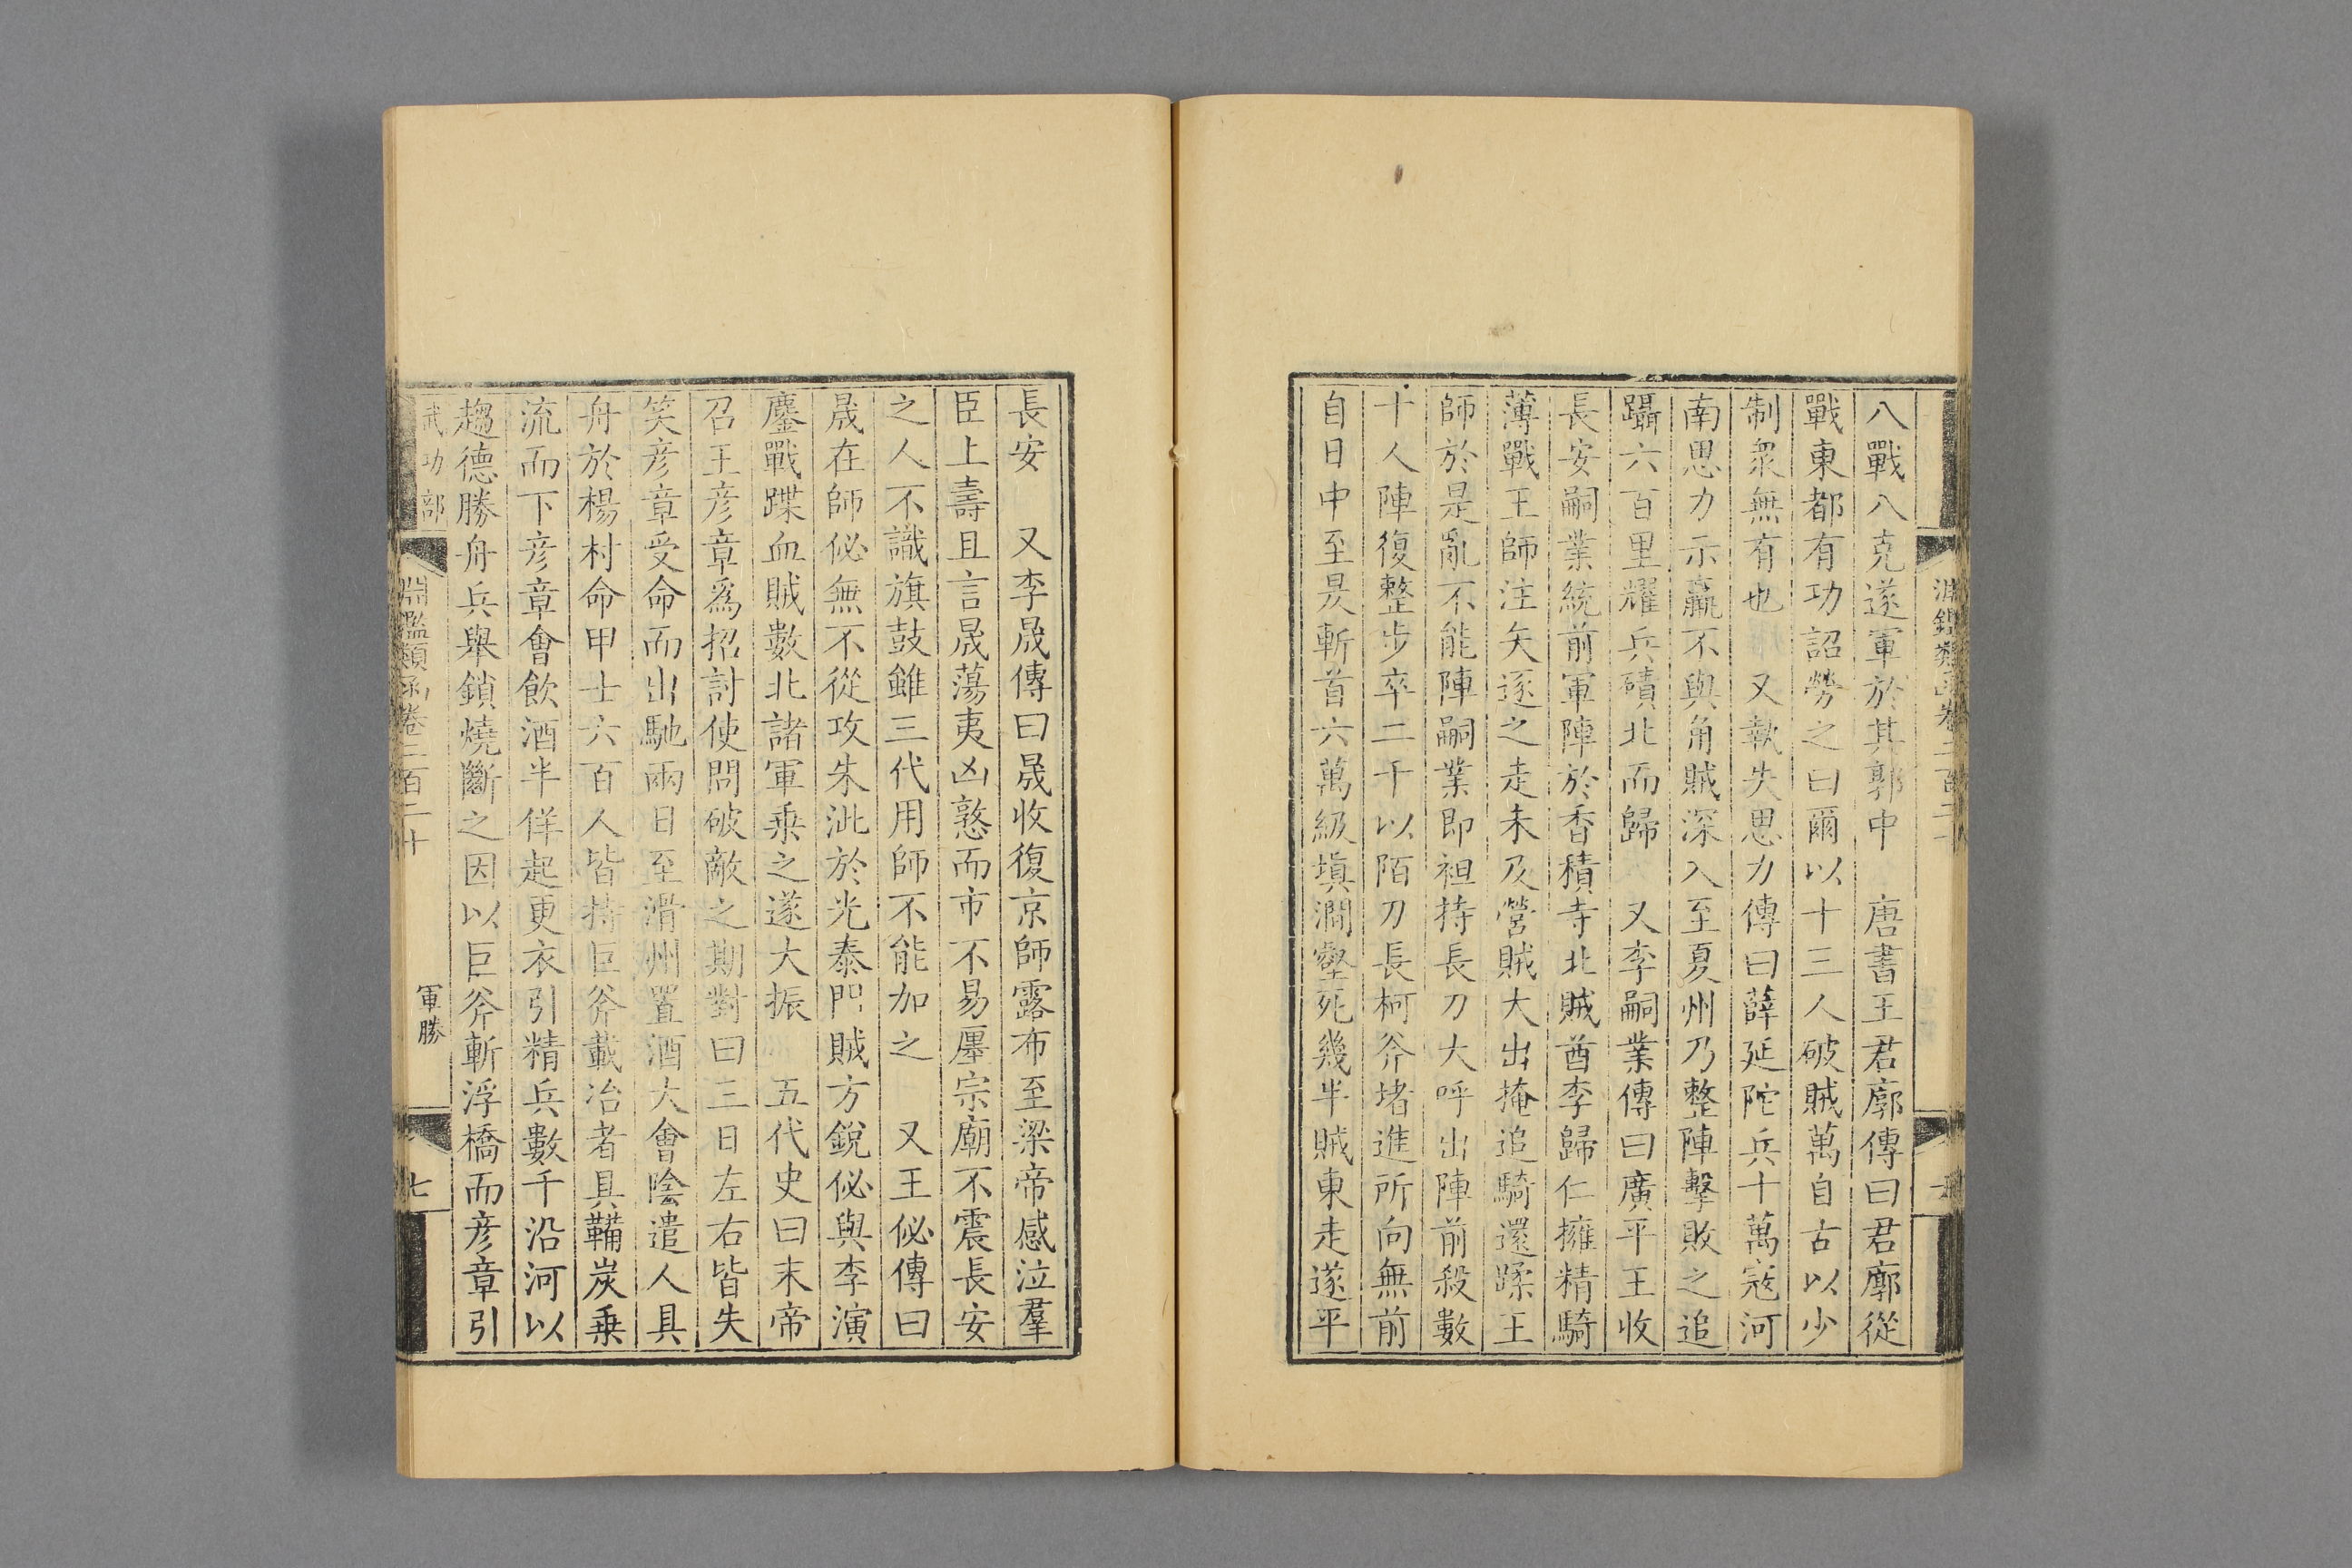 八戰八克遂軍於其郭中　唐書王君廓傳曰君廓從
戰東都有功詔勞之曰爾以十三人破賊萬自古以少
制衆無有也　又執失思力傳曰薛延陀兵十萬寇河
南思力示羸不與角賊深入至夏州乃整陣擊敗之追
躡六百里耀兵磧北而歸　又李嗣業傳曰廣平王收
長安嗣業統前軍陣於香積寺北賊酋李歸仁擁精騎
薄戰王師注矢逐之走未及營賊大出掩追騎還蹂王
師於是亂不能陣嗣業即袒持長刀大呼出陣前殺數
十人陣復整步卒二千以陌刀長柯斧堵進所向無前
自日中至昃斬首六萬級塡澗壑死幾半賊東走遂平
長安　又李晟傳曰晟收復京師露布至梁帝感泣羣
臣上壽且言晟蕩夷凶憝而市不易廛宗廟不震長安
之人不識旗鼓雖三代用師不能加之　又王佖傳曰
晟在師佖無不從攻朱泚於光泰門賊方銳佖與李演
鏖戰蹀血賊數北諸軍乗之遂大振　五代史曰末帝
召王彦章爲招討使問破敵之期對曰三日左右皆失
笑彦章受命而出馳兩日至滑州置酒大會陰遣人具
舟於楊村命甲士六百人皆持巨斧載冶者具鞴炭乗
流而下彦章會飲酒半佯起更衣引精兵數千沿河以
趨德勝舟兵舉鎖燒斷之因以巨斧斬浮橋而彦章引
武功部　淵鑑類函卷二百二十　軍勝　七